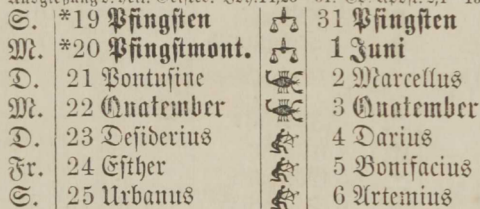 S. *19 Pfingſten 31 Pfingſten
M. *20 Pfingſtmont. 1 Juni
D. 21 Pontuſine 2 Marcellus
M. 22 Quatember 3 Quatember
D. 23 Deſiderius 4 Darius
Fr. 24 Eſther 5 Bonifacius
S. 25 Urbanus 6 Artemius